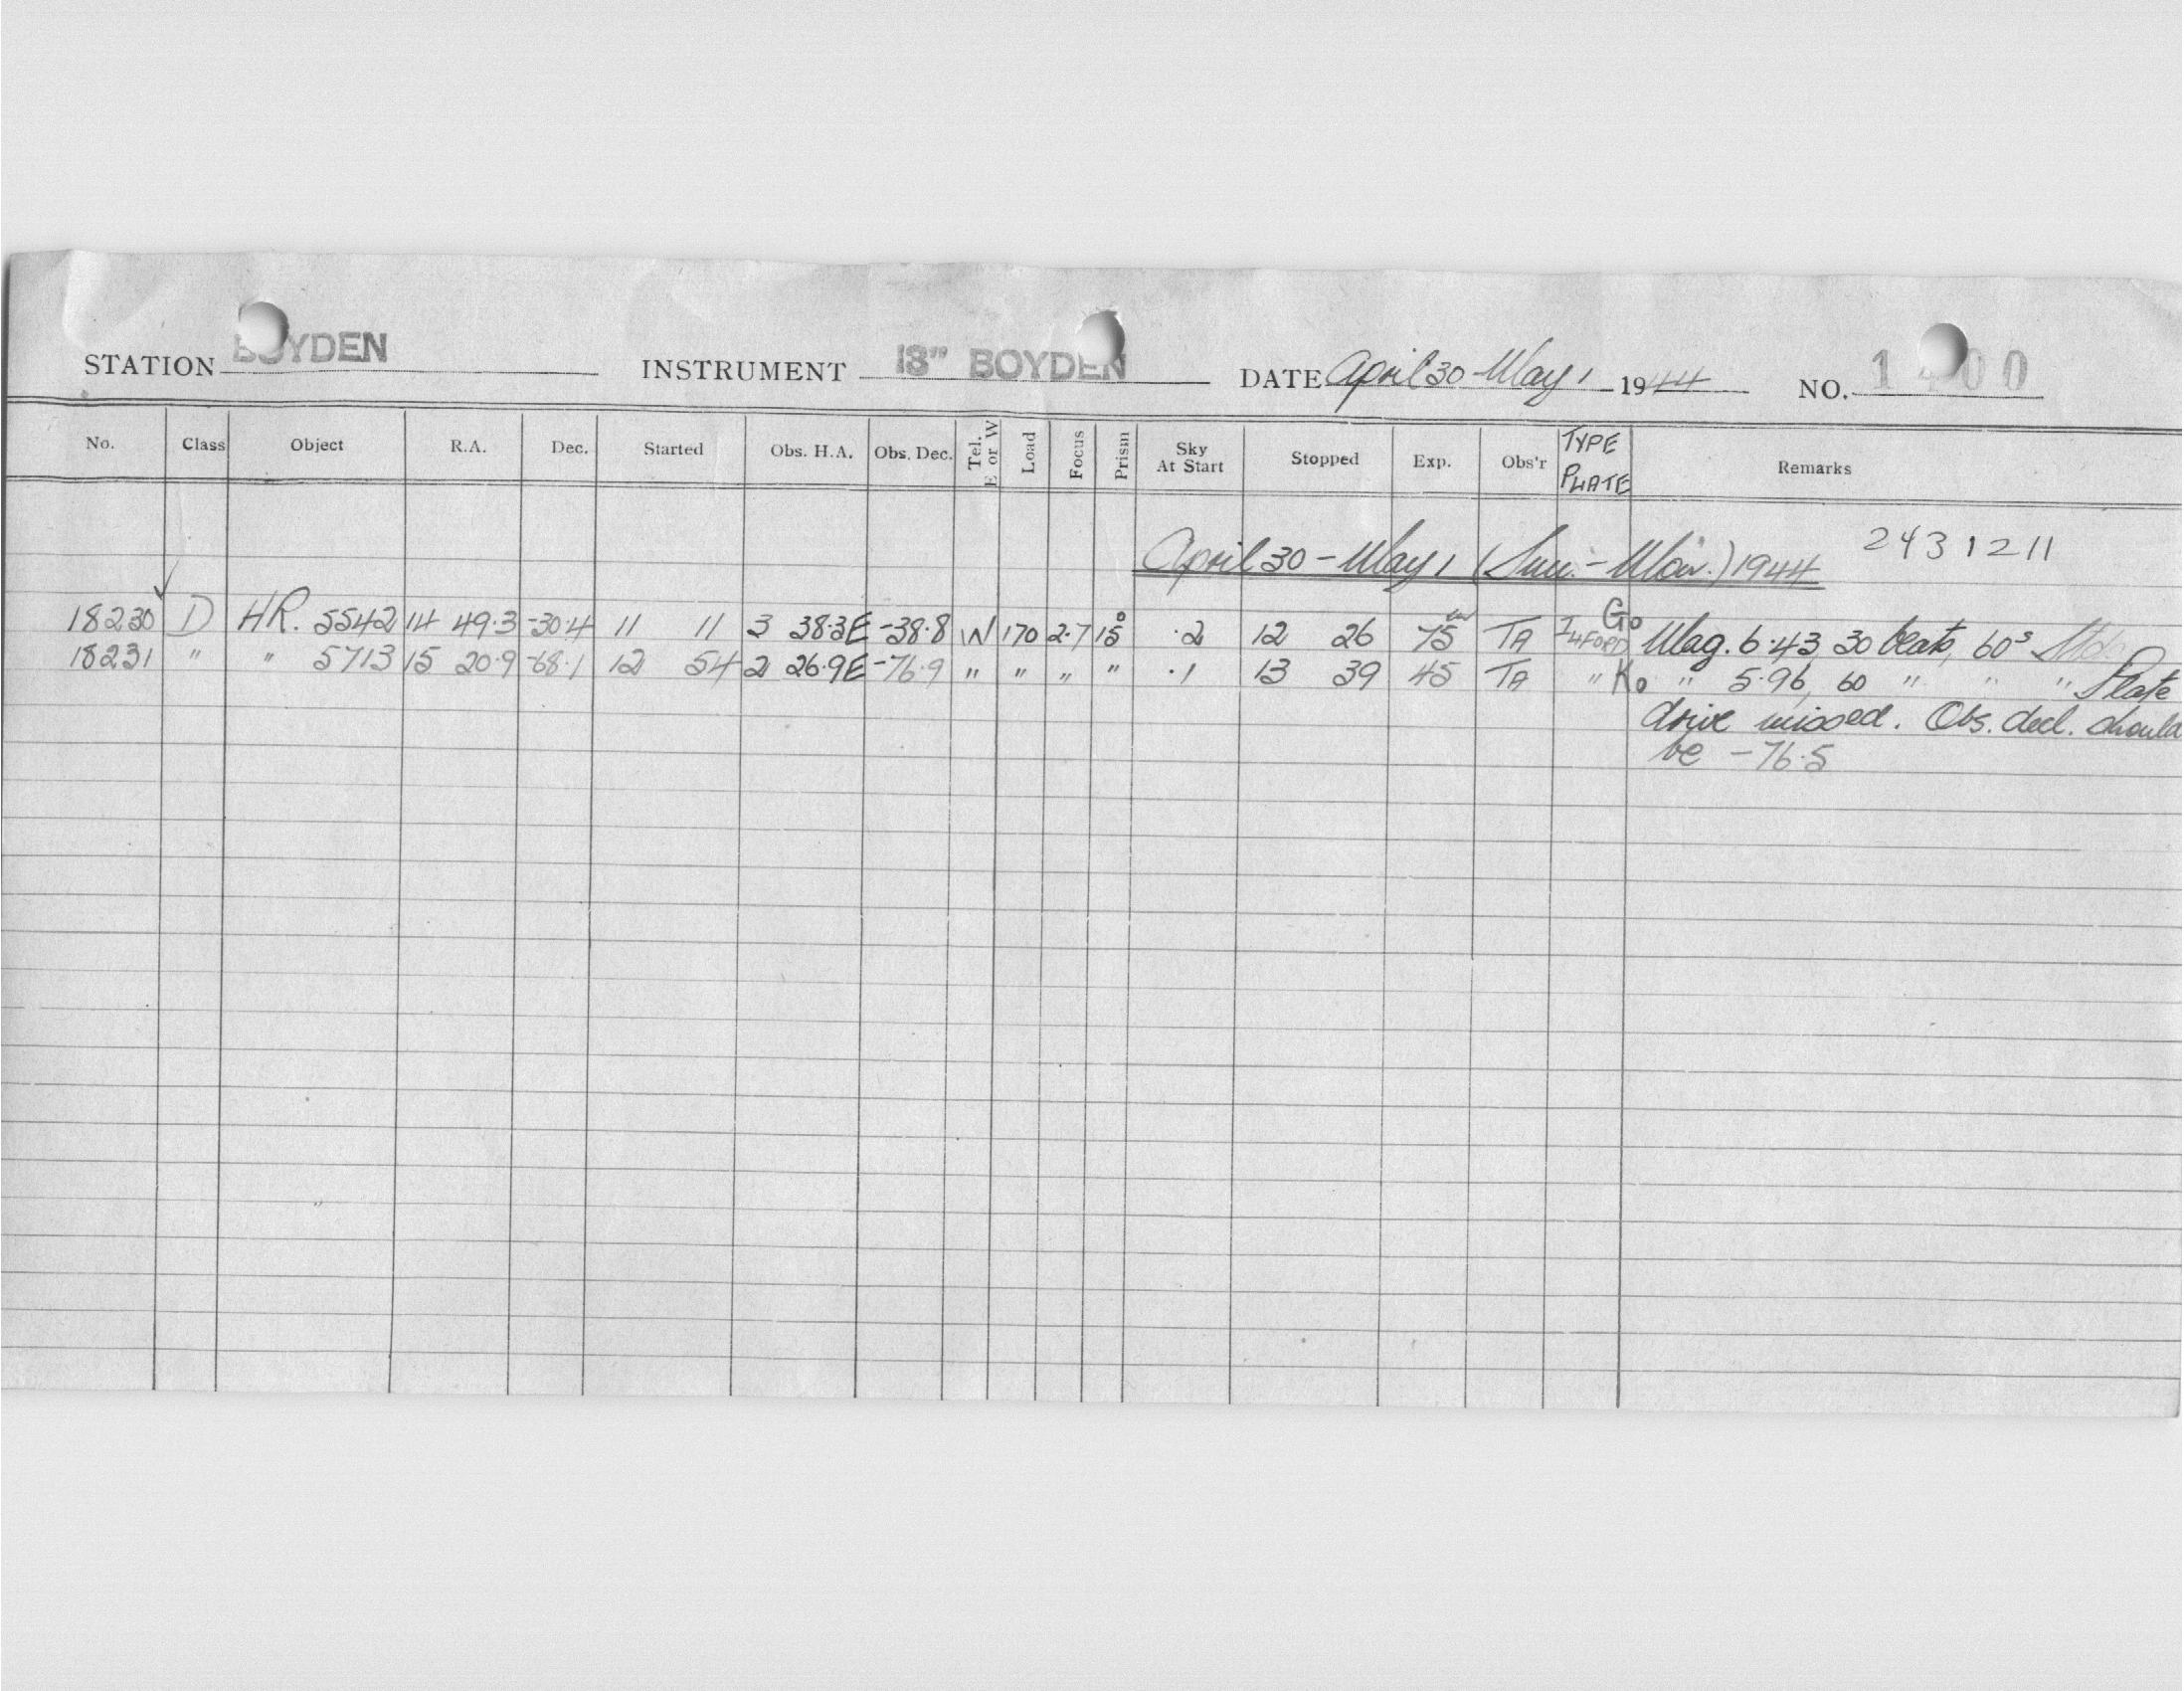 STATION BOYDEN INSTRUMENT 18" BOYDEN DATE April 30 - May 1 1944 NO. 1 00
No. Class Object R.A. Dec. Started Obs. H.A. Obs. Dec. Tel. E or W Load Focus Prism Sky At Start Stopped Exp. Obs'r TYPE PLATE Remarks
April 30 - May 1 (Sun. - Mon.) 1944 2431211
18230 D HR. 5542 14 49.3 -30.4 11 11 3 38.3E -38.8 W 170 2.7 15° .2 12 26 75m TA ILFORD Go Mag. 6.43, 30 beats, 60s
18231 " " 5713 15 20.9 -68.1 12 54 2 26.9E -76.9 " " " " .1 13 39 45 TA " Ko " 5.96, 60 " " " Plate
drive missed. Obs. decl. should
be -76.5